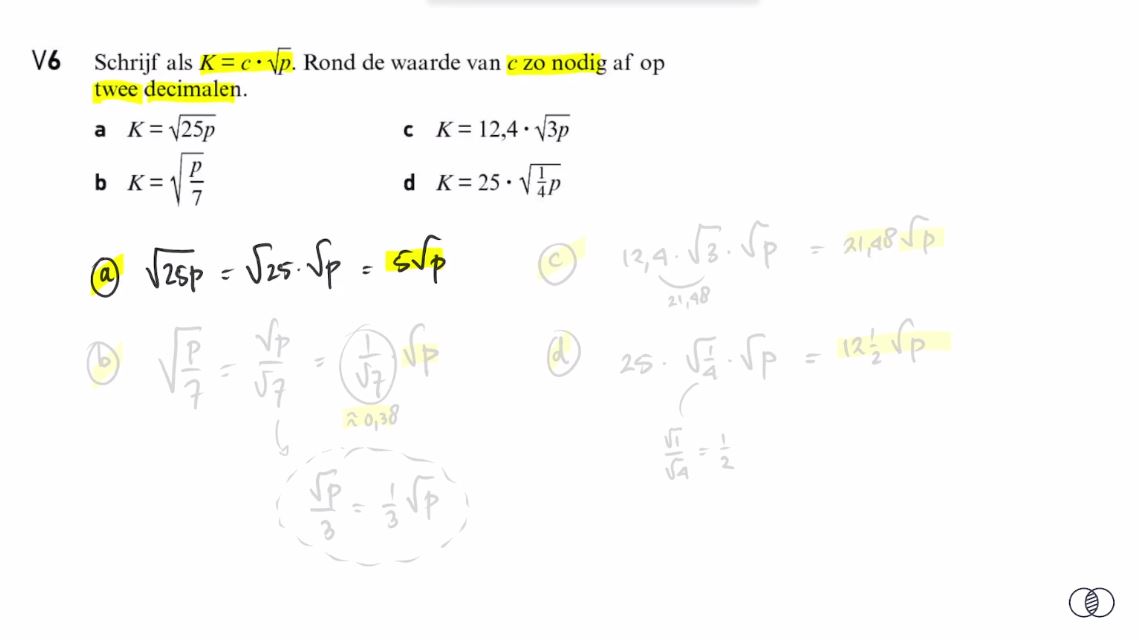 V6 Schrijf als K = c · √p. Rond de waarde van c zo nodig af op
twee decimalen.
a K = √25p
c K = 12,4 · √3p
b K = √p/7
d K = 25 · √1/4p
a √25p = √25 · √p = 5√p
c 12,4 · √3 · √p = 21,48√p
21,48
b √p/7 = √p/√7 = 1/√7 √p
≈ 0,38
d 25 · √1/4 · √p = 12 1/2 √p
√1/√4 = 1/2
√p/3 = 1/3 √p